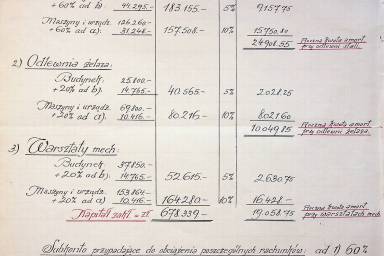 +60% ad b) 44.295.- 183.155.- 5% 9157.75
Maszyny i urządz. 126.260.-
+60% ad a) 31.248.- 157.508.- 10% 15750.80
24908.55 Roczna kwota amort. przy odlewni stali.
2) Odlewnia żelaza:
Budynek 25.800.-
+20% ad b) 14.765.- 40.565.- 5% 2028.25
Maszyny i urządz. 69.800.-
+20% ad a) 10.416.- 80.216.- 10% 8021.60
10049.85 Roczna kwota amort. przy odlewni żelaza.
3) Warsztaty mech:
Budynek 37.850.-
+20% ad b) 14.765.- 52.615.- 5% 2630.75
Maszyny i urządz. 153.864.-
+20% ad a) 10.416.- 164.280.- 10% 16.428.-
Kapitał zakł = zł 678.339.- 19.058.75 Roczna kwota amort. przy warsztatach mech.
Subkonto przypadające do obciążenia poszczególnych rachunków: ad 1) 60%